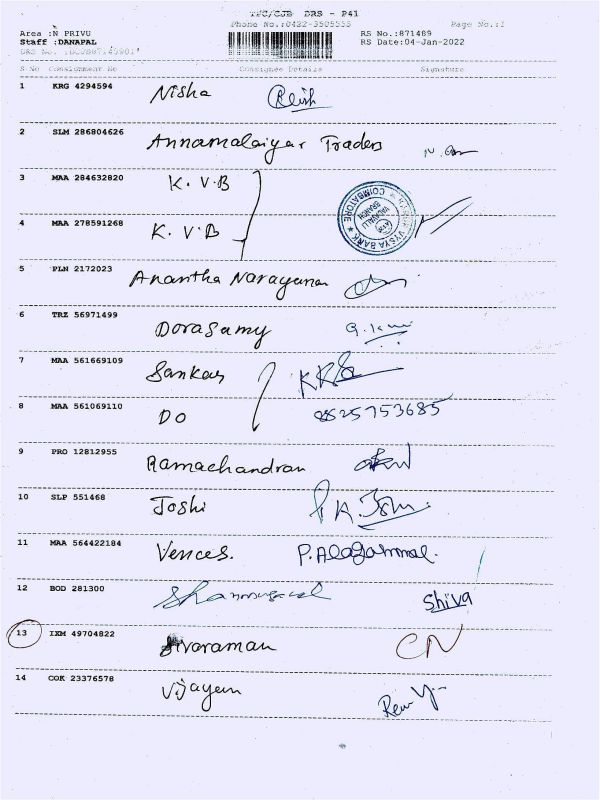 TPC/CJB DRS - P41
Phone No.:0422-3505555 Page No.:1
Area :N PRIVU RS No.:871489
Staff :DANAPAL RS Date:04-Jan-2022
S.No Consignment No Consignee Details Signature
1 KRG 4294594 Nisha
2 SLM 286804626 Annamalaiyar Traders
3 MAA 284632820 K. V.B
4 MAA 278591268 K. V.B
VYSYA BANK ★ COIMBATORE ★
5 PLN 2172023 Anantha Narayanan
6 TRZ 56971499 Dorasamy
7 MAA 561669109 Sankar
8 MAA 561069110 DO 8825753685
9 PRO 12812955 Ramachandran
10 SLP 551468 Joshi
11 MAA 564422184 Vences. P.Alagammal.
12 BOD 281300 Shanmugavel Shiva
13 IXM 49704822 Sivaraman CN
14 COK 23376578 Vijayen